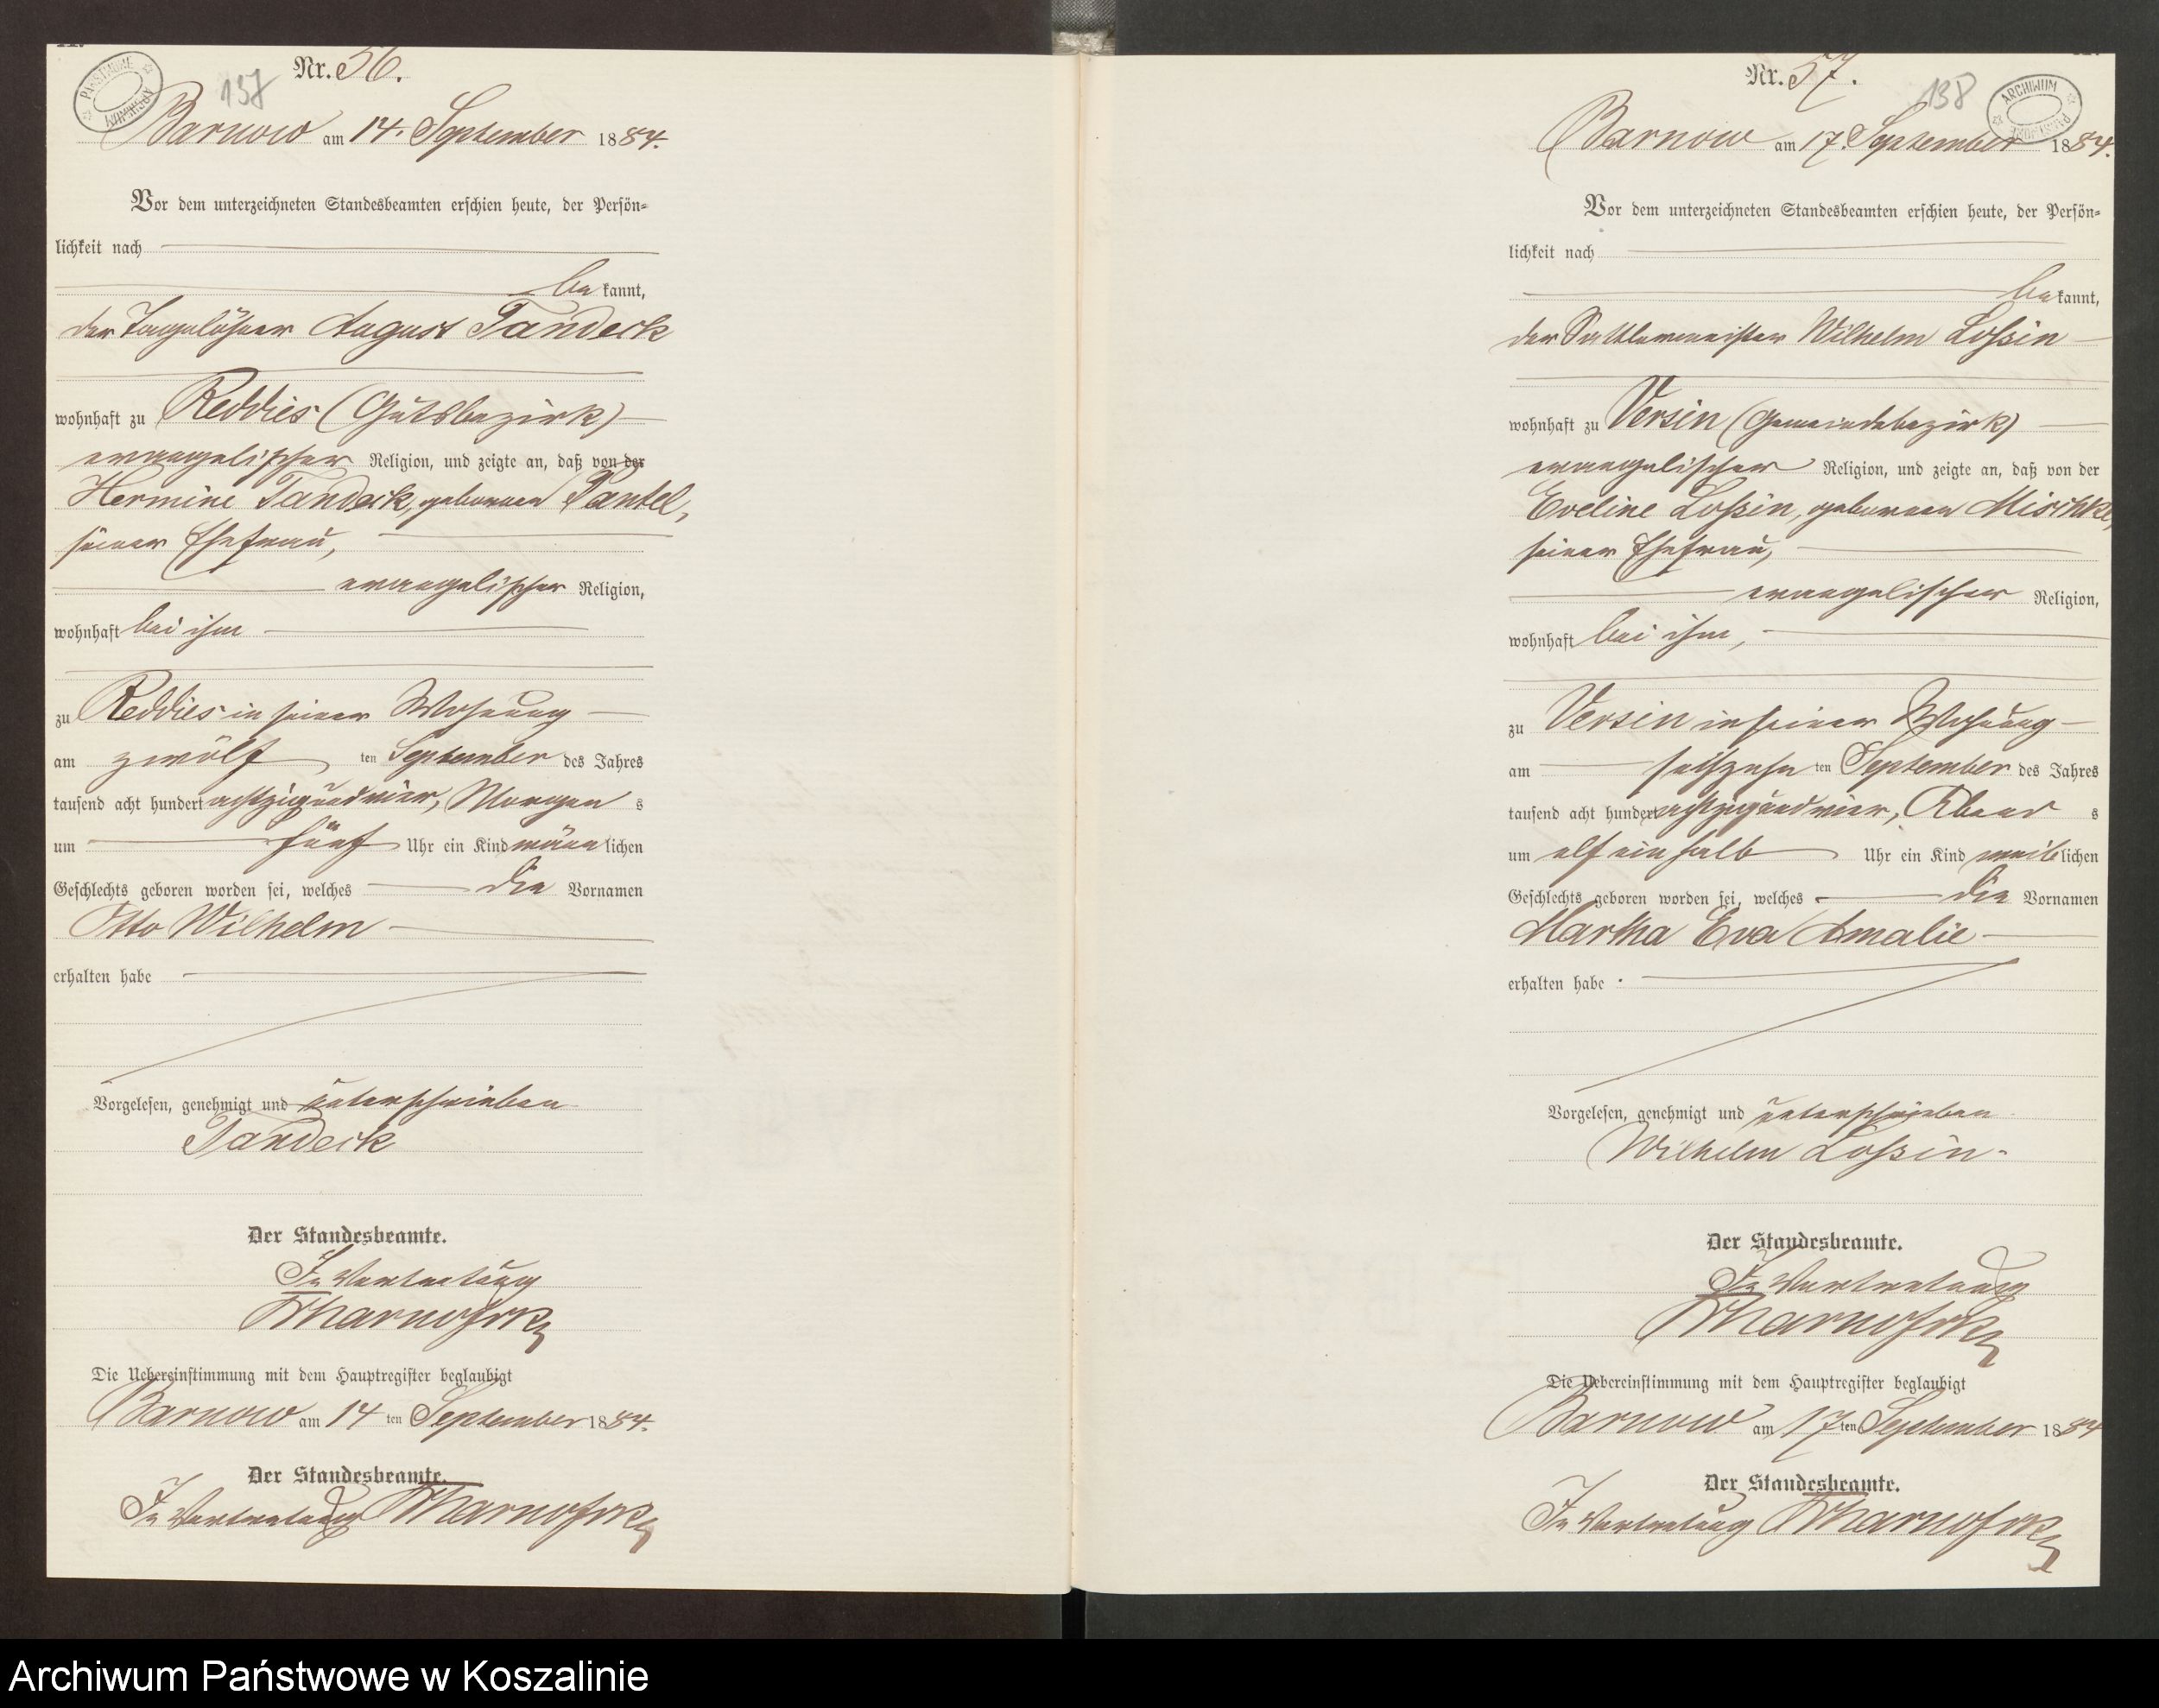 Nr. 56.
137
ARCHIWUM PAŃSTWOWE
Barnow am 14. September 1884.
Vor dem unterzeichneten Standesbeamten erschien heute, der Persön-
lichkeit nach
be kannt,
der Tagelöhner August Tandeck
wohnhaft zu Reddies (Gutsbezirk)
evangelischer Religion, und zeigte an, daß von der
Hermine Tandeck, geborenen Pantel,
seiner Ehefrau,
evangelischer Religion,
wohnhaft bei ihm
zu Reddies in seiner Wohnung
am zwölf ten September des Jahres
tausend acht hundert achtzig und vier, Morgen s
um fünf Uhr ein Kind männ lichen
Geschlechts geboren worden sei, welches die Vornamen
Otto Wilhelm
erhalten habe
Vorgelesen, genehmigt und unterschrieben
Tandeck
Der Standesbeamte.
In Vertretung
Die Uebereinstimmung mit dem Hauptregister beglaubigt
Barnow am 14 ten September 1884.
Der Standesbeamte.
In Vertretung
Nr. 57.
138
ARCHIWUM PAŃSTWOWE
Barnow am 17. September 1884.
Vor dem unterzeichneten Standesbeamten erschien heute, der Persön-
lichkeit nach
be kannt,
der Sattlermeister Wilhelm Loßin
wohnhaft zu Versin (Gemeindebezirk)
evangelischer Religion, und zeigte an, daß von der
Eveline Loßin, geborenen Mischke,
seiner Ehefrau,
evangelischer Religion,
wohnhaft bei ihm,
zu Versin in seiner Wohnung
am sechszehn ten September des Jahres
tausend acht hundert achtzig und vier, Abend s
um elf ein halb Uhr ein Kind weib lichen
Geschlechts geboren worden sei, welches die Vornamen
Martha Eva Amalie
erhalten habe.
Vorgelesen, genehmigt und unterschrieben
Wilhelm Loßin.
Der Standesbeamte.
In Vertretung
Die Uebereinstimmung mit dem Hauptregister beglaubigt
Barnow am 17 ten September 1884
Der Standesbeamte.
In Vertretung
Archiwum Państwowe w Koszalinie